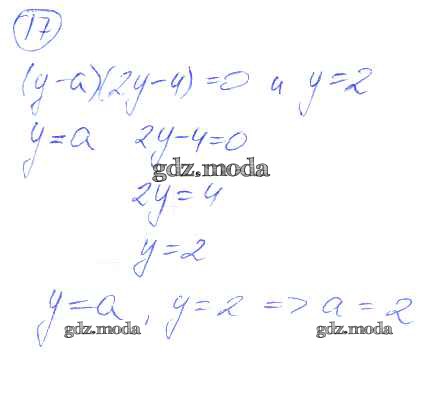 17
(y-a)(2y-4)=0 и y=2
y=a 2y-4=0
gdz.moda
2y=4
y=2
y=a, y=2 => a=2
gdz.moda gdz.moda